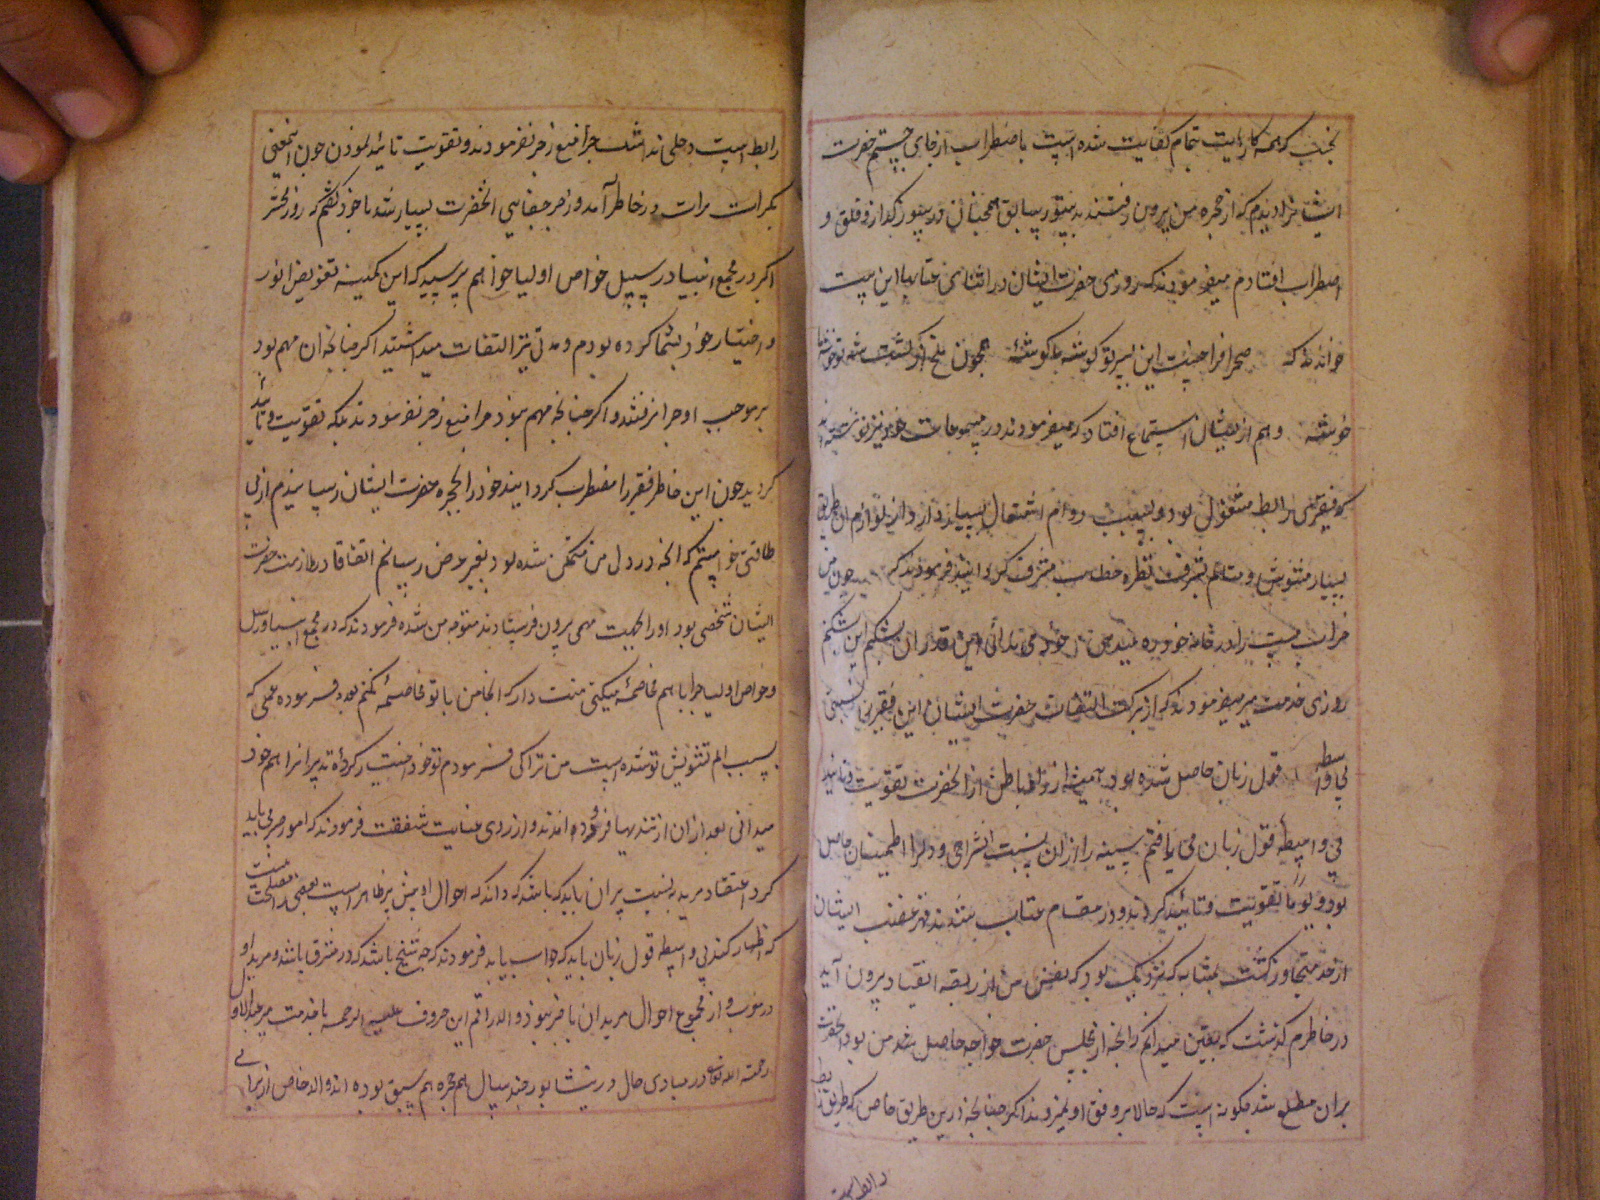 که همه کارهایت تمام کفایت شده است باضطراب از جای جستم حضرت
ایشانرا دیدم که از حجره من بیرون رفتند بدستور سابق همچنان در سوز و گداز و قلق و
اضطراب افتادم میفرمودند که روزی حضرت ایشان در اثنای عتابها این بیت
خواندند که صحرا فراخست این پسر تو گوشه ما گوشه همچون ملخ در کشت شه تو خوشه ما
خوشه وهم از ایشان استماع افتاد که میفرمودند در مسموعات خود نیز نوشته
که فقیر برابطه مشغول بود و بسبب دوام اشتغال بسیار از لوازم این طریق
بسیار مشوش و متألم بشرف نظر خطاب مشرف گردانید فرمودند که چون من
خراب مست را در خانه خود ره میدهی خود می ندانی این قدر این بشکنم آن بشکنم
روزی خدمت میر میفرمودند که از برکت التفات حضرت ایشان این فقیر را نسبتی
بی واسطه قول زبان حاصل شده بود همیشه از باطن آنحضرت تقویت
بی واسطه قول زبان می یافتم سینه را از آن نسبت انشراحی و دلرا اطمینان حاصل
بود و یوماً تقویت و تائید کردند و در مقام عتاب شدند قهر و غضب ایشان
از حد متجاوز گشت بمثابه که نزدیک بود که نفس من از ربقه انقیاد بیرون آید
در خاطرم گذشت که یقین میدانم که آنچه از مجلس حضرت خواجه حاصل شد من بود آنحضرت
بران مطلع شد چگونه است که حالا بر وفق او نمیروند اگر چنانچه درین طریق خاص که طریق رابطه
رابطه است
رابطه است دخلی نداشت چرا منع و زجر نفرمودند و تقویت تائید نمودن چون اینمعنی
بکرات مرات در خاطر آمد و زجر جفاهای آنحضرت بسیار شد با خود گفتم که روز محشر
اکبر در مجمع انبیا و رسل خواص اولیا خواهم پرسید که این کمینه تفویض امور
و اختیار خود بشما کرده بودم و مدتی نیز التفات میداشتید اگر چنانچه آن مهم بود
بر موجب او چرا نرفتند و اگر چنانچه مهم نبود چرا منع و زجر نفرمودند بلکه تقویت و تائید
کردید چون این خاطر فقیر را مضطرب گردانید خود را بحجره حضرت ایشان رسانیدم از بی
طاقتی خواستم که آنچه در دل من متمکن شده بود بفقیر عرض رسانم اتفاقا در ملازمت حضرت
ایشان شخصی بود او را بجهت مهمی بیرون فرستادند متوجه من شده فرمودند که در مجمع انبیا و رسل
و خواص اولیا چرا باهم مخاصمه میکنی منت دار که آنجا من با تو مخاصمه کنم بعد فرموده عملی که
بسبب الم تشویش تو شده است من ترا کی فرمودم تو خود اختیار کرده تدبیر آنرا هم خود
میدانی بعد از آن از تندیها فرود آمدند و از روی عنایت شفقت فرمودند که امور صبر می باید
کرد اعتقاد مرید بنسبت پیران باید که باشد که داند که احوال او پیش پیر ظاهر است بعضی را مصلحت نیست
که اظهار کند بی واسطه قول زبان باید که جواب بیابد فرمودند که چه شیخ باشد که در مشرق باشد و مرید او
در مغرب و از مجموع احوال مریدان باخبر نبود والد راقم این حروف علیه الرحمه با خدمت میر عبدالاول
رحمة الله تعالی در مبادی حال در نیشابور چند سال هم حجره هم سبق بوده اند والد خاص از برای